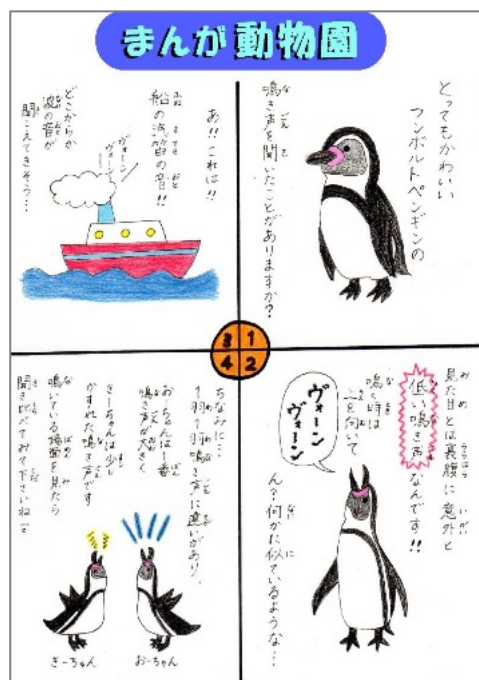 まんが動物園
とってもかわいい
フンボルトペンギンの
鳴き声を聞いたことがありますか？
1
見た目とは裏腹に意外と
低い鳴き声なんです!!
鳴く時は
上を向いて
ヴォーン
ヴォーン
ん？何かに似ているような…
2
あ!!これは!!
船の汽笛の音!!
ヴォーン
ヴォーン
どこからか
波の音が
聞こえてきそう…
3
ちなみに…
1羽1羽鳴き声に違いがあり、
おーちゃんは1番
鳴き声が大きく
きーちゃんは少し
かすれた鳴き声です
鳴いている場面を見たら
聞き比べてみて下さいね
きーちゃん
おーちゃん
4